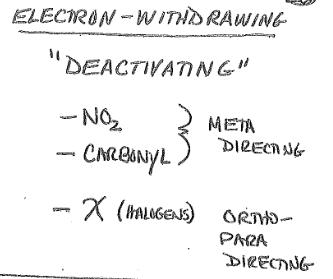 ELECTRON-WITHDRAWING
"DEACTIVATING"
- NO₂ } META
- CARBONYL } DIRECTING
- X (HALOGENS) ORTHO-
PARA
DIRECTING